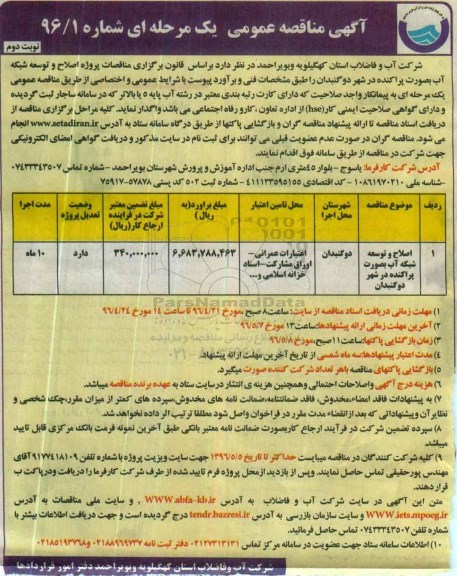 آگهی مناقصه عمومی یک مرحله ای شماره ۹۶/۱
نوبت دوم
شرکت آب و فاضلاب استان کهگیلویه وبویراحمد در نظر دارد براساس قانون برگزاری مناقصات پروژه اصلاح و توسعه شبکه
آب بصورت پراکنده در شهر دوگنبدان را طبق مشخصات فنی و برآورد پیوست با شرایط عمومی و اختصاصی از طریق مناقصه عمومی
یک مرحله ای به پیمانکار واجد صلاحیت که دارای کارت رتبه بندی معتبر در رشته آب پایه ۵ یا بالاتر که در سامانه ساجار ثبت گردیده
و دارای گواهی صلاحیت ایمنی کار(hse) از اداره تعاون ،کار و رفاه اجتماعی می باشد واگذار نماید. کلیه مراحل برگزاری مناقصه از
دریافت اسناد مناقصه تا ارائه پیشنهاد مناقصه گران و بازگشایی پاکتها از طریق درگاه سامانه ستاد به آدرس www.setadiran.ir انجام
می شود. مناقصه گران در صورت عدم عضویت قبلی می توانند برای ثبت نام در سایت مذکور و دریافت گواهی امضای الکترونیکی
جهت شرکت در مناقصه از طریق سامانه فوق اقدام نمایند.
آدرس شرکت کارفرما: یاسوج - بلوار ۴۵متری ارم جنب اداره آموزش و پرورش شهرستان بویراحمد - شماره تماس ۰۷۴۳۳۳۴۳۵۰۷
-شناسه ملی ۱۰۸۶۱۹۷۰۲۱۰ - کد اقتصادی ۴۱۱۱۳۳۵۹۵۱۵۵ - شماره ثبت ۵۰۲ کد پستی ۵۷۸۷۸-۷۵۹۱۷
ردیف موضوع مناقصه شهرستان محل اجرا محل تامین اعتبار مبلغ براورد(به ریال) مبلغ تضمین معتبر شرکت در فرآینده ارجاع کار(ریال) وضعیت تعدیل پروژه مدت اجرا
۱ اصلاح و توسعه شبکه آب بصورت پراکنده در شهر دوگنبدان دوگنبدان اعتبارات عمرانی- اوراق مشارکت-اسناد خزانه اسلامی و... ۶,۶۸۳,۷۸۸,۴۶۳ ۳۴۰,۰۰۰,۰۰۰ دارد ۱۰ ماه
ParsNamadData
۱) مهلت زمانی دریافت اسناد مناقصه از سایت: ساعت ۸ صبح ،مورخ ۹۶/۴/۲۱ تا ساعت ۱۴ مورخ ۹۶/۴/۲۴
۲) آخرین مهلت زمانی ارائه پیشنهادها: ساعت ۱۳ مورخ ۹۶/۵/۷
۳) زمان بازگشایی پاکتها: ساعت ۱۱ صبح، مورخ ۹۶/۵/۸
۴) مدت اعتبار پیشنهادها سه ماه شمسی از تاریخ آخرین مهلت ارائه پیشنهاد.
۵) بازگشایی پاکتهای مناقصه با هر تعداد شرکت کننده صورت میگیرد.
۶) هزینه درج آگهی واصلاحات احتمالی وهمچنین هزینه ی انتشار درسایت ستاد به عهده برنده مناقصه میباشد.
۷) به پیشنهادات فاقد امضاء،مخدوش، فاقد ضمانتنامه،ضمانت نامه های مخدوش،سپرده های کمتر از میزان مقرر،چک شخصی و
نظایر آن و پیشنهاداتی که بعد از انقضاء مدت مقرر در فراخوان واصل شود مطلقا ترتیب اثر داده نخواهد شد.
۸) سپرده تضمین شرکت در فرآیند ارجاع کاربصورت ضمانت نامه معتبر بانکی طبق آخرین نمونه فرمت بانک مرکزی قابل تایید
میباشد.
۹) کلیه شرکت کنندگان در مناقصه میبایست حداکثر تا تاریخ ۱۳۹۶/۵/۵ جهت سایت ویزیت پروژه با شماره تلفن ۰۹۱۷۷۴۱۸۱۰۹ آقای
مهندس پورحقیقی تماس حاصل نمایند. وپس از بازدید از محل پروژه فرم تایید شده از طرف شرکت کارفرما را دریافت ودر پاکت ب
قرار دهند.
متن این آگهی در سایت شرکت آب و فاضلاب به آدرس WWW.abfa-kb.ir ، و سایت ملی مناقصات به آدرس
WWW.iets.mporg.ir و سایت سازمان بازرسی به آدرس tendr.bazresi.ir درج گردیده است و جهت دریافت اطلاعات بیشتر با
شماره تلفن ۰۷۴۳۳۳۴۳۵۰۷ تماس حاصل فرمائید.
۱۰) اطلاعات سامانه ستاد جهت عضویت در سامانه مرکز تماس ۰۲۱۲۷۳۱۳۱۳۱ دفتر ثبت نامه ۰۲۱۸۸۹۶۹۷۳۷ و ۰۲۱۸۵۱۹۳۷۶۸
شرکت آب وفاضلاب استان کهگیلویه وبویراحمد دفتر امور قراردادها